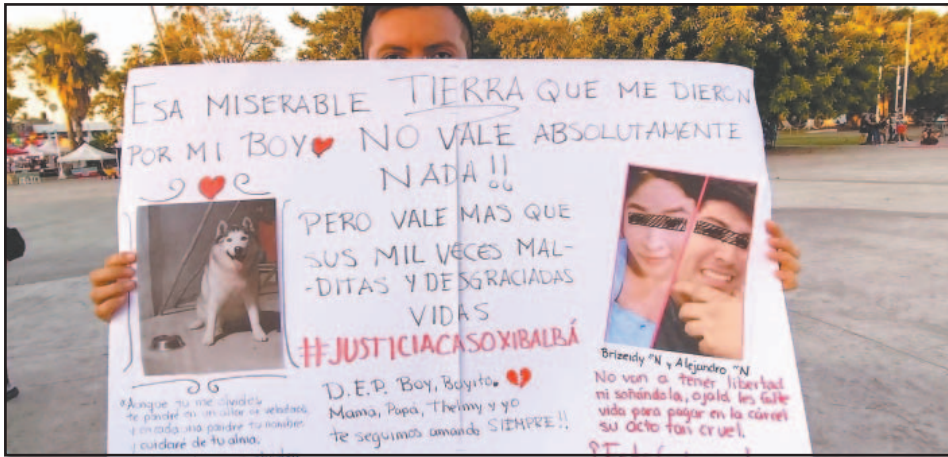 ESA MISERABLE TIERRA QUE ME DIERON
POR MI BOY NO VALE ABSOLUTAMENTE
NADA!!
PERO VALE MAS QUE
SUS MIL VECES MAL-
-DITAS Y DESGRACIADAS
VIDAS
#JUSTICIACASOXIBALBÁ
D.E.P. Boy, Boyito.
Mamá, Papá, Thelmy y yo
te seguimos amando SIEMPRE!!
"Aunque tu me olvides,
te pondré en un altar de veladoras
y en cada una pondré tu nombre
y cuidaré de tu alma.
Brizeidy "N y Alejandro "N
No van a tener libertad
ni soñándola, ojalá les falte
vida para pagar en la cárcel
su acto tan cruel.